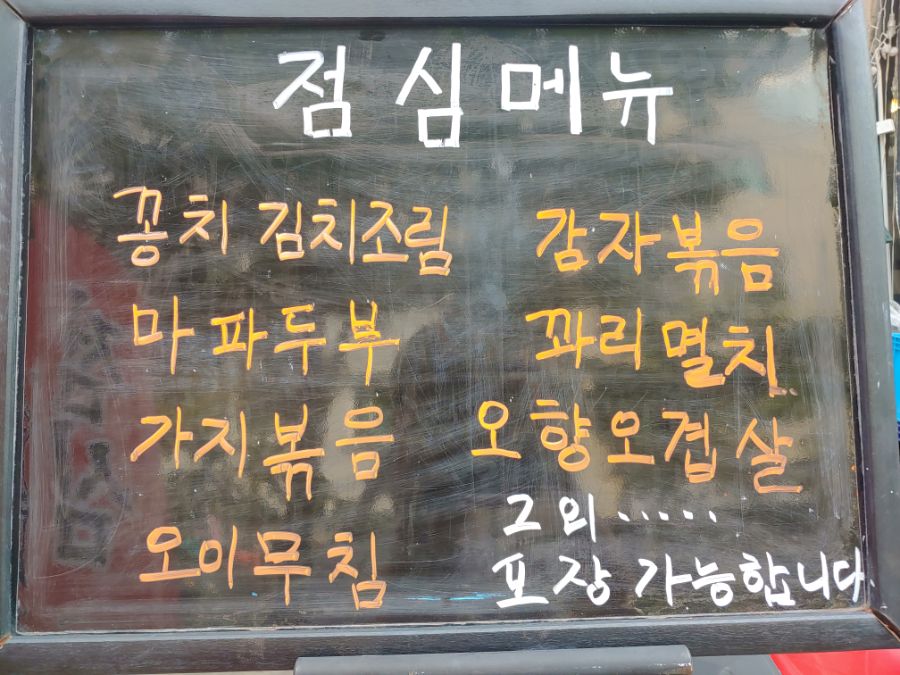 점심메뉴
꽁치 김치조림
마파두부
가지볶음
오이무침
감자볶음
꽈리멸치
오향오겹살
그 외.....
포장 가능합니다.